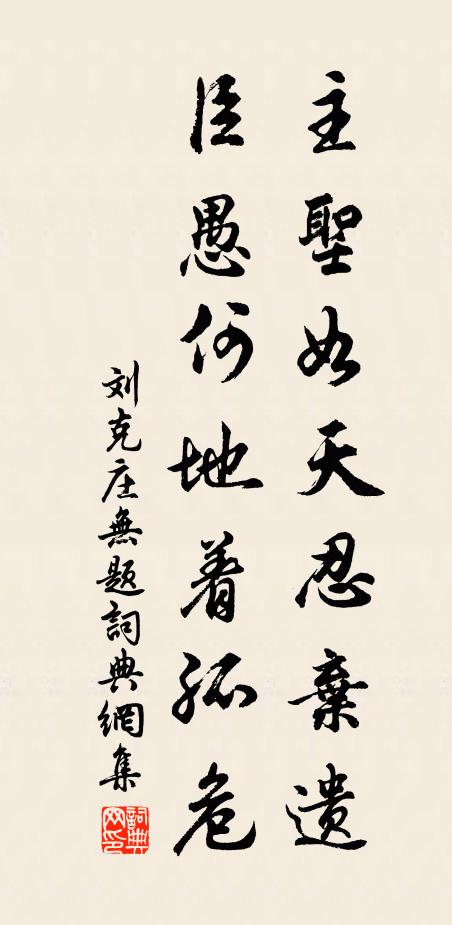 主聖如天忍棄遺
臣愚何地着孤危
刘克庄無题詞典網集
詞典网印